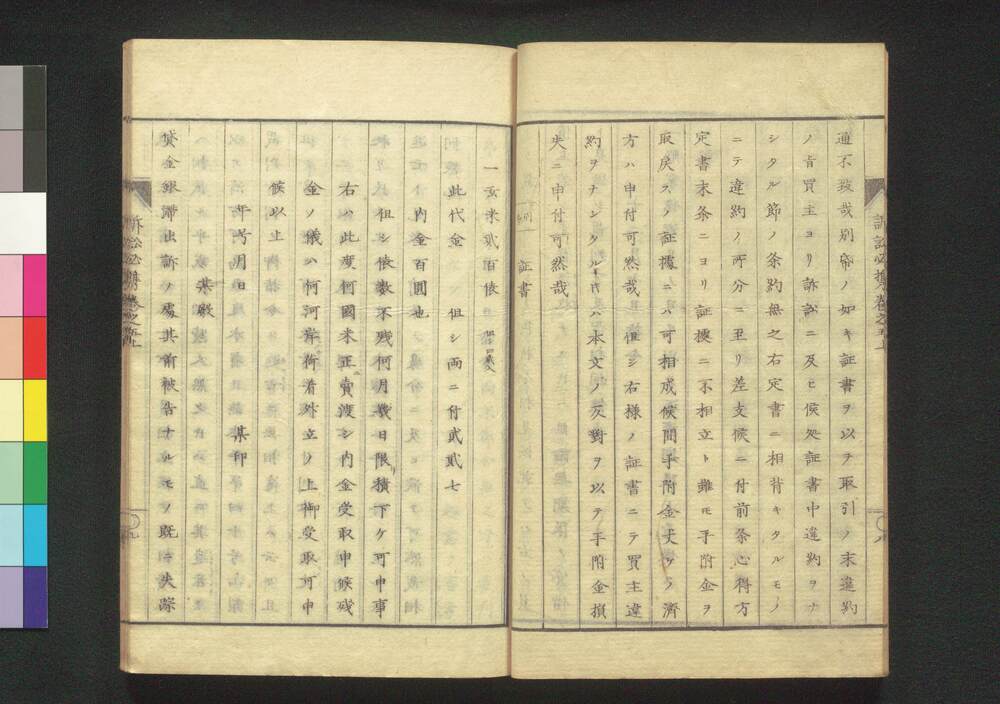 通不致哉別帋ノ如キ証書ヲ以テ取引ノ末違約
ノ旨買主ヨリ訴訟ニ及ヒ候処証書中違約ヲナ
シタル節ノ条約無之右定書ニ相背キタルモノ
ニテ違約ノ所分ニ至リ差支候ニ付前条心得方
定書末条ニヨリ証拠ニ不相立ト雖モ手附金ヲ
取戻スノ証拠ニハ可相成候間手附金丈ケヲ済
方ハ申付可然哉 但シ右様ノ証書ニテ買主違
約ヲナシタルキハ本文ノ反對ヲ以テ手附金損
失ニ申付可然哉
証書
一玄米貳百俵
此代金 但シ両ニ付貳貳七
内金百圓也
但シ俵数不残何月幾日限積下ケ可申事
右ハ此度何國米正ニ賣渡シ内金受取申候残
金ノ儀ハ何河岸荷着外立ノ上御受取可申
候以上
年号月日 某印
某殿
貸金銀滞出訴ノ處其前被告ナルモノ既ニ失踪
訴訟必携巻之五上
訴訟必携巻之五上